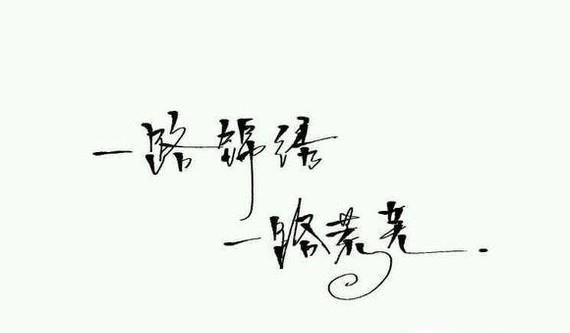 一路锦绣
一路荒芜.